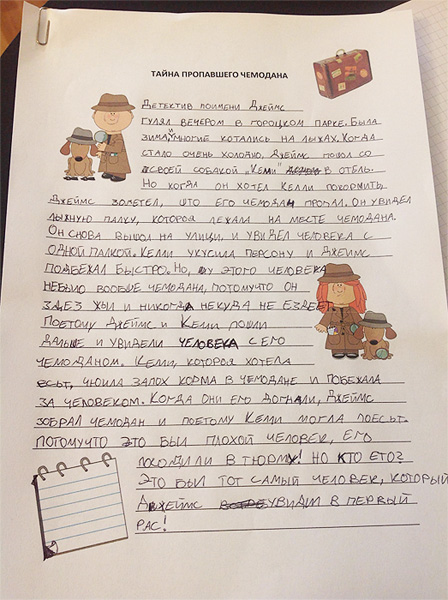 ТАЙНА ПРОПАВШЕГО ЧЕМОДАНА
ДЕТЕКТИВ ПОИМЕНИ ДЖЕЙМС
ГУЛЯЛ ВЕЧЕРОМ В ГОРОЦКОМ ПАРКЕ. БЫЛА
ЗИМА И МНОГИЕ КОТАЛИСЬ НА ЛЫЖАХ. КОГДА
СТАЛО ОЧЕНЬ ХОЛОДНО, ДЖЕЙМС ПОШОЛ СО
СВОЕЙ СОБАКОЙ "КЕЛИ" В ОТЕЛЬ.
НО КОГДА ОН ХОТЕЛ КЕЛЛИ ПОКОРМИТЬ
ДЖЕЙМС ЗОМЕТЕЛ, ШТО ЕГО ЧЕМОДАН ПРОПАЛ. ОН УВИДЕЛ
ЛЫЖНУЮ ПАЛКУ, КОТОРОЯ ЛЕЖАЛА НА МЕСТЕ ЧЕМОДАНА.
ОН СНОВА ВЫШОЛ НА УЛИЦИ, И УВИДЕЛ ЧЕЛОВЕКА С
ОДНОЙ ПАЛКОЙ. КЕЛИ УКУСИЛА ПЕРСОНУ И ДЖЕЙМС
ПОДБЕЖАЛ БЫСТРО. НО, У ЭТОГО ЧЕЛОВЕКА
НЕБЫЛО ВООБШЕ ЧЕМОДАНА, ПОТОМУЧТО ОН
ЗДЕЗ ЖЫЛ И НИКОГДА НЕКУДА НЕ ЕЗДЕЕТ
ПОЕТОМУ ДЖЕЙМС И КЕЛИ ПОШЛИ
ДАЛЬШЕ И УВИДЕЛИ ЧЕЛОВЕКА С ЕГО
ЧЕМОДАНОМ. КЕЛИ, КОТОРОЯ ХОТЕЛА
ЕСЬТ, УНОИЛА ЗАПОХ КОРМА В ЧЕМОДАНЕ И ПОБЕЖАЛА
ЗА ЧЕЛОВЕКОМ. КОГДА ОНИ ЕГО ДОГНАЛИ, ДЖЕЙМС
ЗОБРАЛ ЧЕМОДАН И ПОЕТОМУ КЕЛИ МОГЛА ПОЕСЬТ.
ПОТОМУЧТО ЭТО БЫЛ ПЛОХОЙ ЧЕЛОВЕК, ЕГО
ПОСОДИЛИ В ТЮРМУ! НО КТО ЕТО?
ЭТО БЫЛ ТОТ САМЫЙ ЧЕЛОВЕК, КОТОРЫЙ
ДЖЕЙМС УВИДИЛ В ПЕРВЫЙ
РАС!